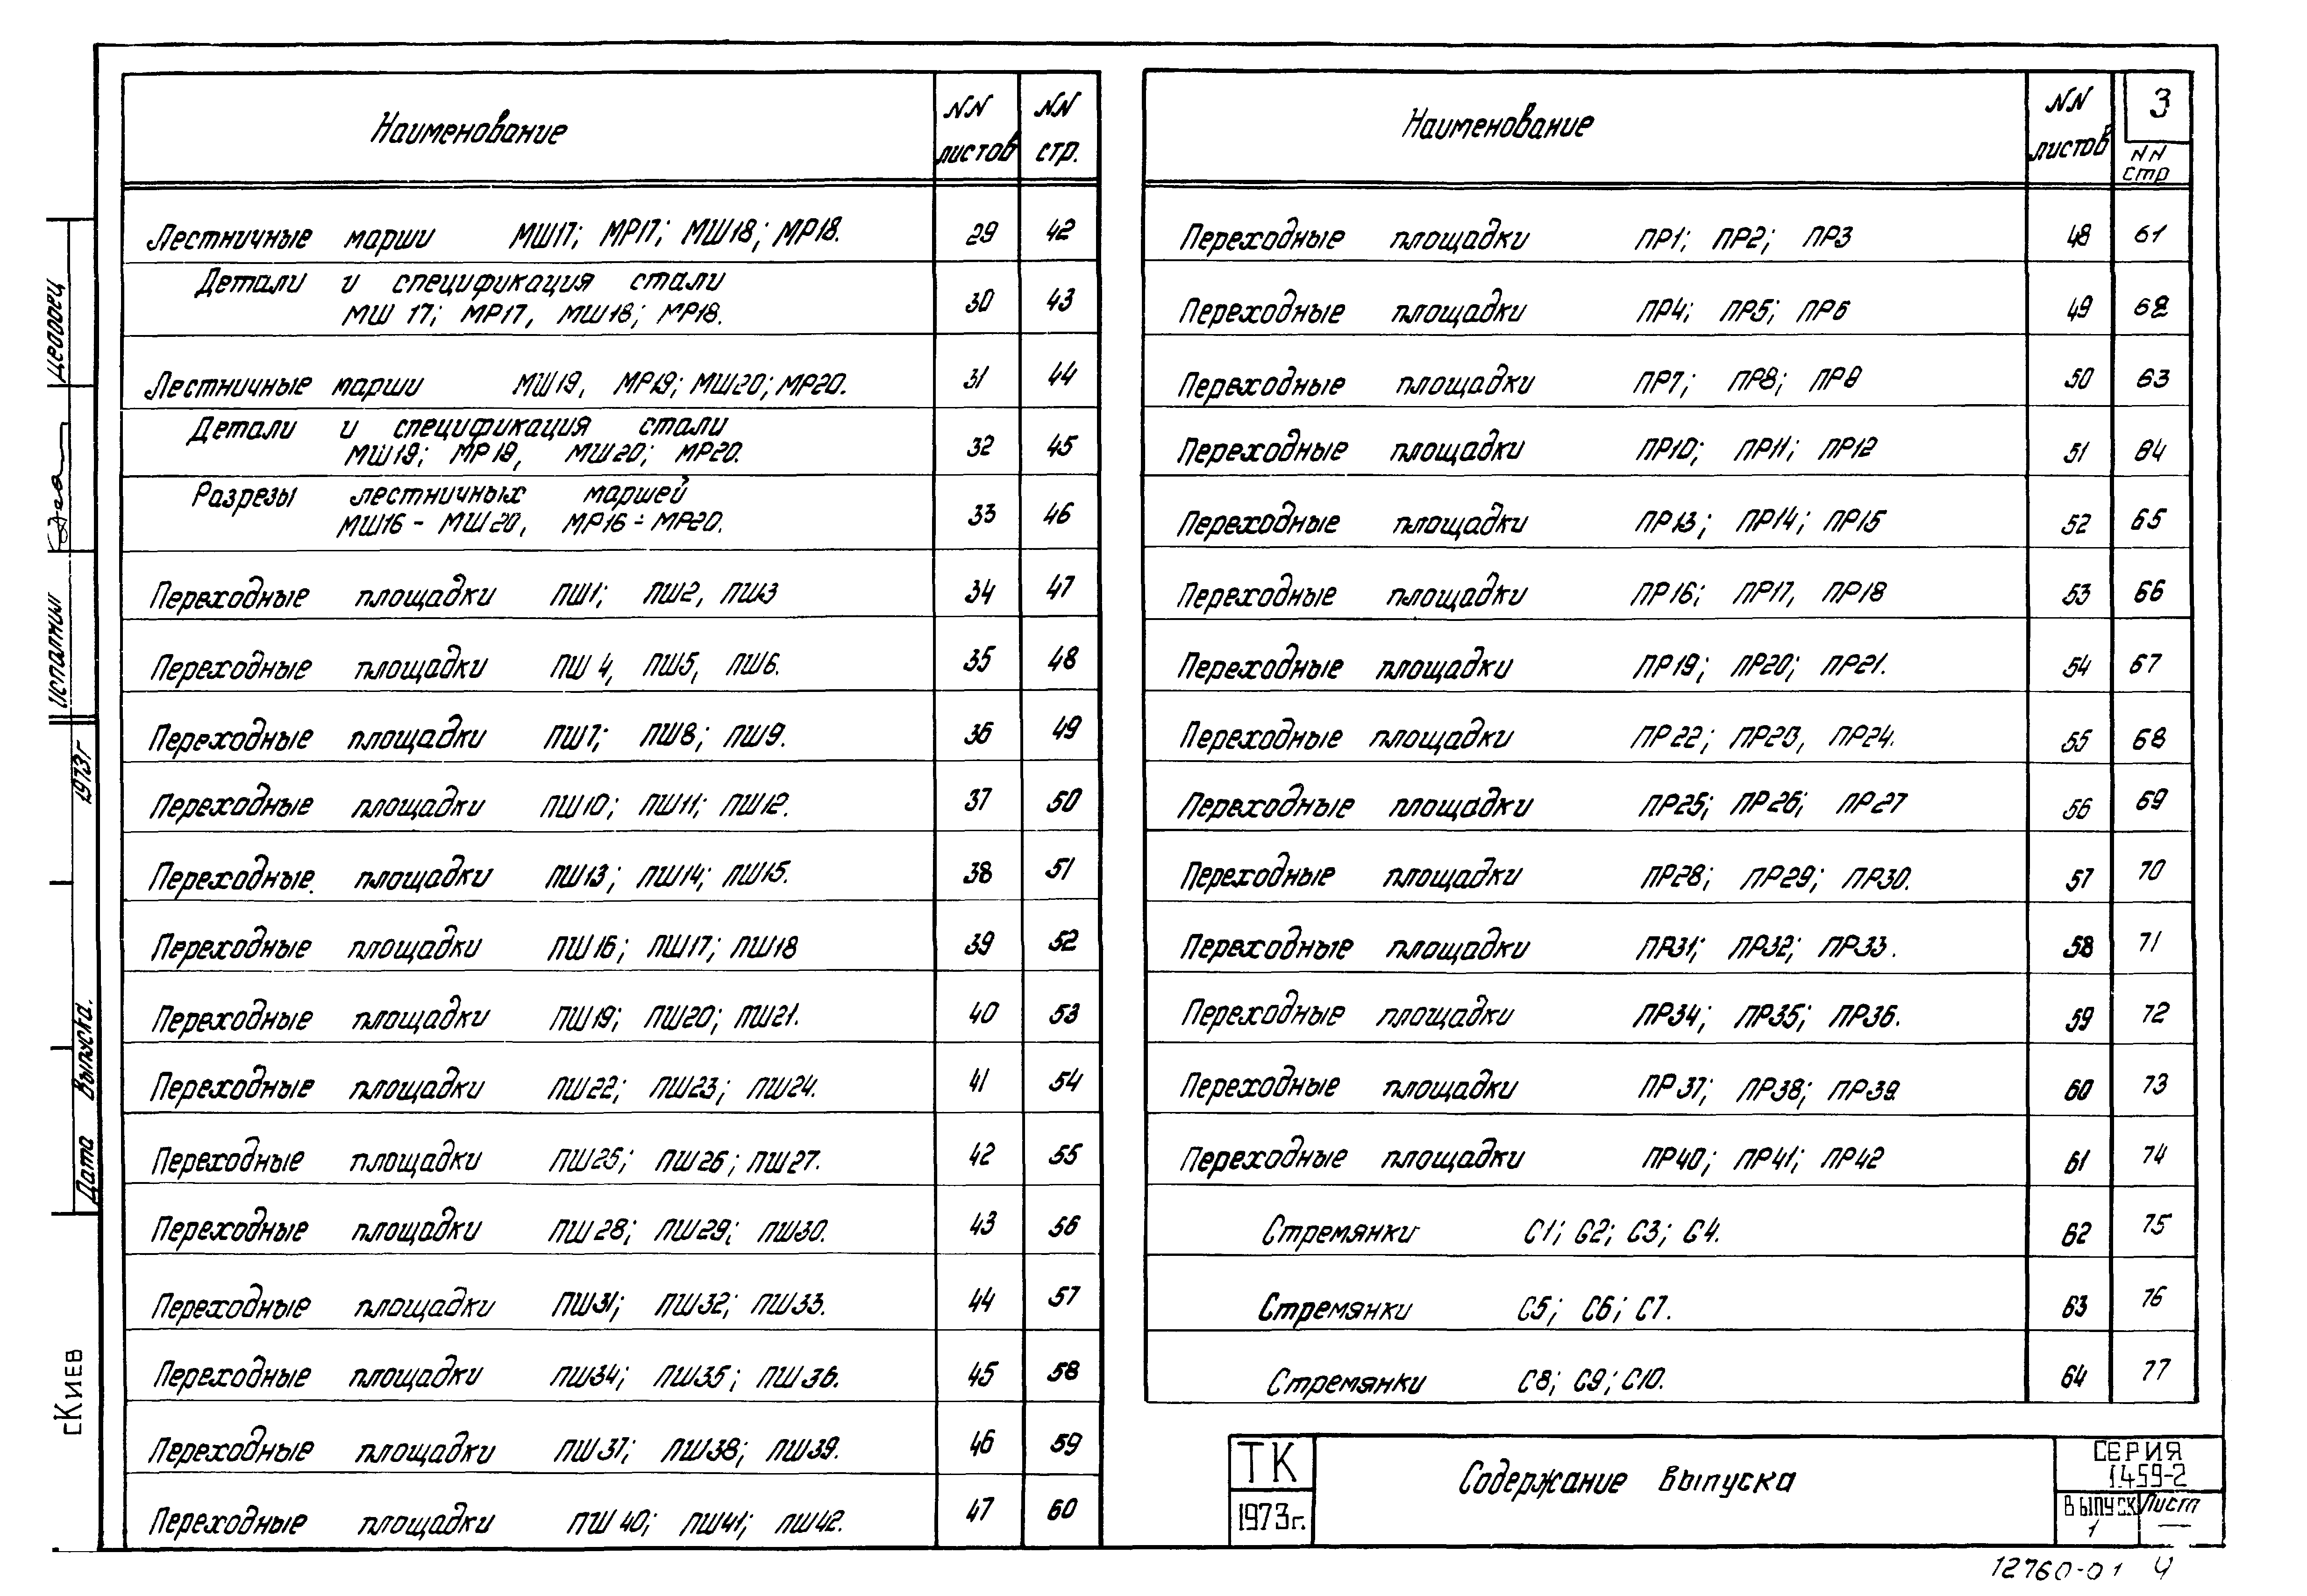 Наименование NN листов NN стр.
Лестничные марши МШ17; МР17; МШ18; МР18. 29 42
Детали и спецификация стали
МШ 17; МР17, МШ18; МР18. 30 43
Лестничные марши МШ19, МР19; МШ20; МР20. 31 44
Детали и спецификация стали
МШ19; МР19, МШ20; МР20. 32 45
Разрезы лестничных маршей
МШ16 - МШ20, МР16 ÷ МР20. 33 46
Переходные площадки ПШ1; ПШ2, ПШ3 34 47
Переходные площадки ПШ 4, ПШ5, ПШ6. 35 48
Переходные площадки ПШ7; ПШ8; ПШ9. 36 49
Переходные площадки ПШ10; ПШ11; ПШ12. 37 50
Переходные. площадки ПШ13; ПШ14; ПШ15. 38 51
Переходные площадки ПШ16; ПШ17; ПШ18 39 52
Переходные площадки ПШ19; ПШ20; ПШ21. 40 53
Переходные площадки ПШ22; ПШ23; ПШ24. 41 54
Переходные площадки ПШ25; ПШ26; ПШ27. 42 55
Переходные площадки ПШ28; ПШ29; ПШ30. 43 56
Переходные площадки ПШ31; ПШ32; ПШ33. 44 57
Переходные площадки ПШ34; ПШ35; ПШ36. 45 58
Переходные площадки ПШ37; ПШ38; ПШ39. 46 59
Переходные площадки ПШ 40; ПШ41; ПШ42. 47 60
3
Наименование NN листов NN стр
Переходные площадки ПР1; ПР2; ПР3 48 61
Переходные площадки ПР4; ПР5; ПР6 49 62
Переходные площадки ПР7; ПР8; ПР9 50 63
Переходные площадки ПР10; ПР11; ПР12 51 64
Переходные площадки ПР13; ПР14; ПР15 52 65
Переходные площадки ПР16; ПР17, ПР18 53 66
Переходные площадки ПР19; ПР20; ПР21. 54 67
Переходные площадки ПР22; ПР23, ПР24. 55 68
Переходные площадки ПР25; ПР26; ПР27 56 69
Переходные площадки ПР28; ПР29; ПР30. 57 70
Переходные площадки ПР31; ПР32; ПР33. 58 71
Переходные площадки ПР34; ПР35; ПР36. 59 72
Переходные площадки ПР37; ПР38; ПР39. 60 73
Переходные площадки ПР40; ПР41; ПР42 61 74
Стремянки С1; С2; С3; С4. 62 75
Стремянки С5; С6; С7. 63 76
Стремянки С8; С9; С10. 64 77
ТК
1973г.
Содержание выпуска
СЕРИЯ
1.459-2
ВЫПУСК Лист
1 —
12760-01 4
сКИЕВ
Дата выпуска. 1973г